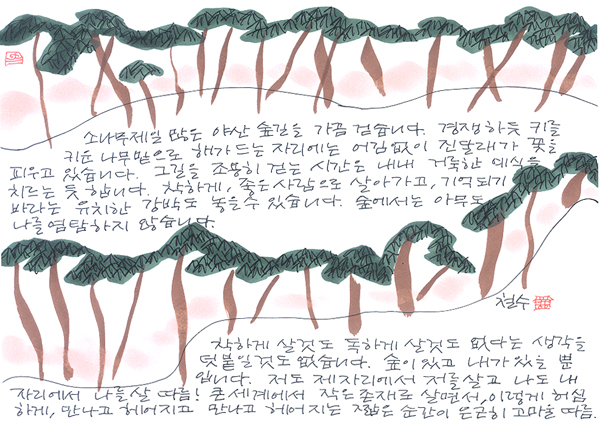 소나무제일 많은 야산 숲길을 가끔 걷습니다. 경쟁하듯 키를
키운 나무밑으로 해가드는 자리에는 어김없이 진달래가 꽃을
피우고 있습니다. 그길을 조용히 걷는 시간은 내내 거룩한 의식을
치르는 듯 합니다. 착하게, 좋은사람으로 살아가고, 기억되기
바라는 유치한 강박도 놓을수 있습니다. 숲에서는 아무도
나를 염탐하지 않습니다.
철수
착하게 살것도 독하게 살것도 없다는 생각을
덧붙일것도 없습니다. 숲이있고 내가있을 뿐
입니다. 저도 제자리에서 저를살고 나도 내
자리에서 나를살 따름! 큰세계에서 작은존재로 살면서, 이렇게 허심
하게, 만나고 헤어지고 만나고 헤어지는 짧은 순간이 은근히 고마울 따름.